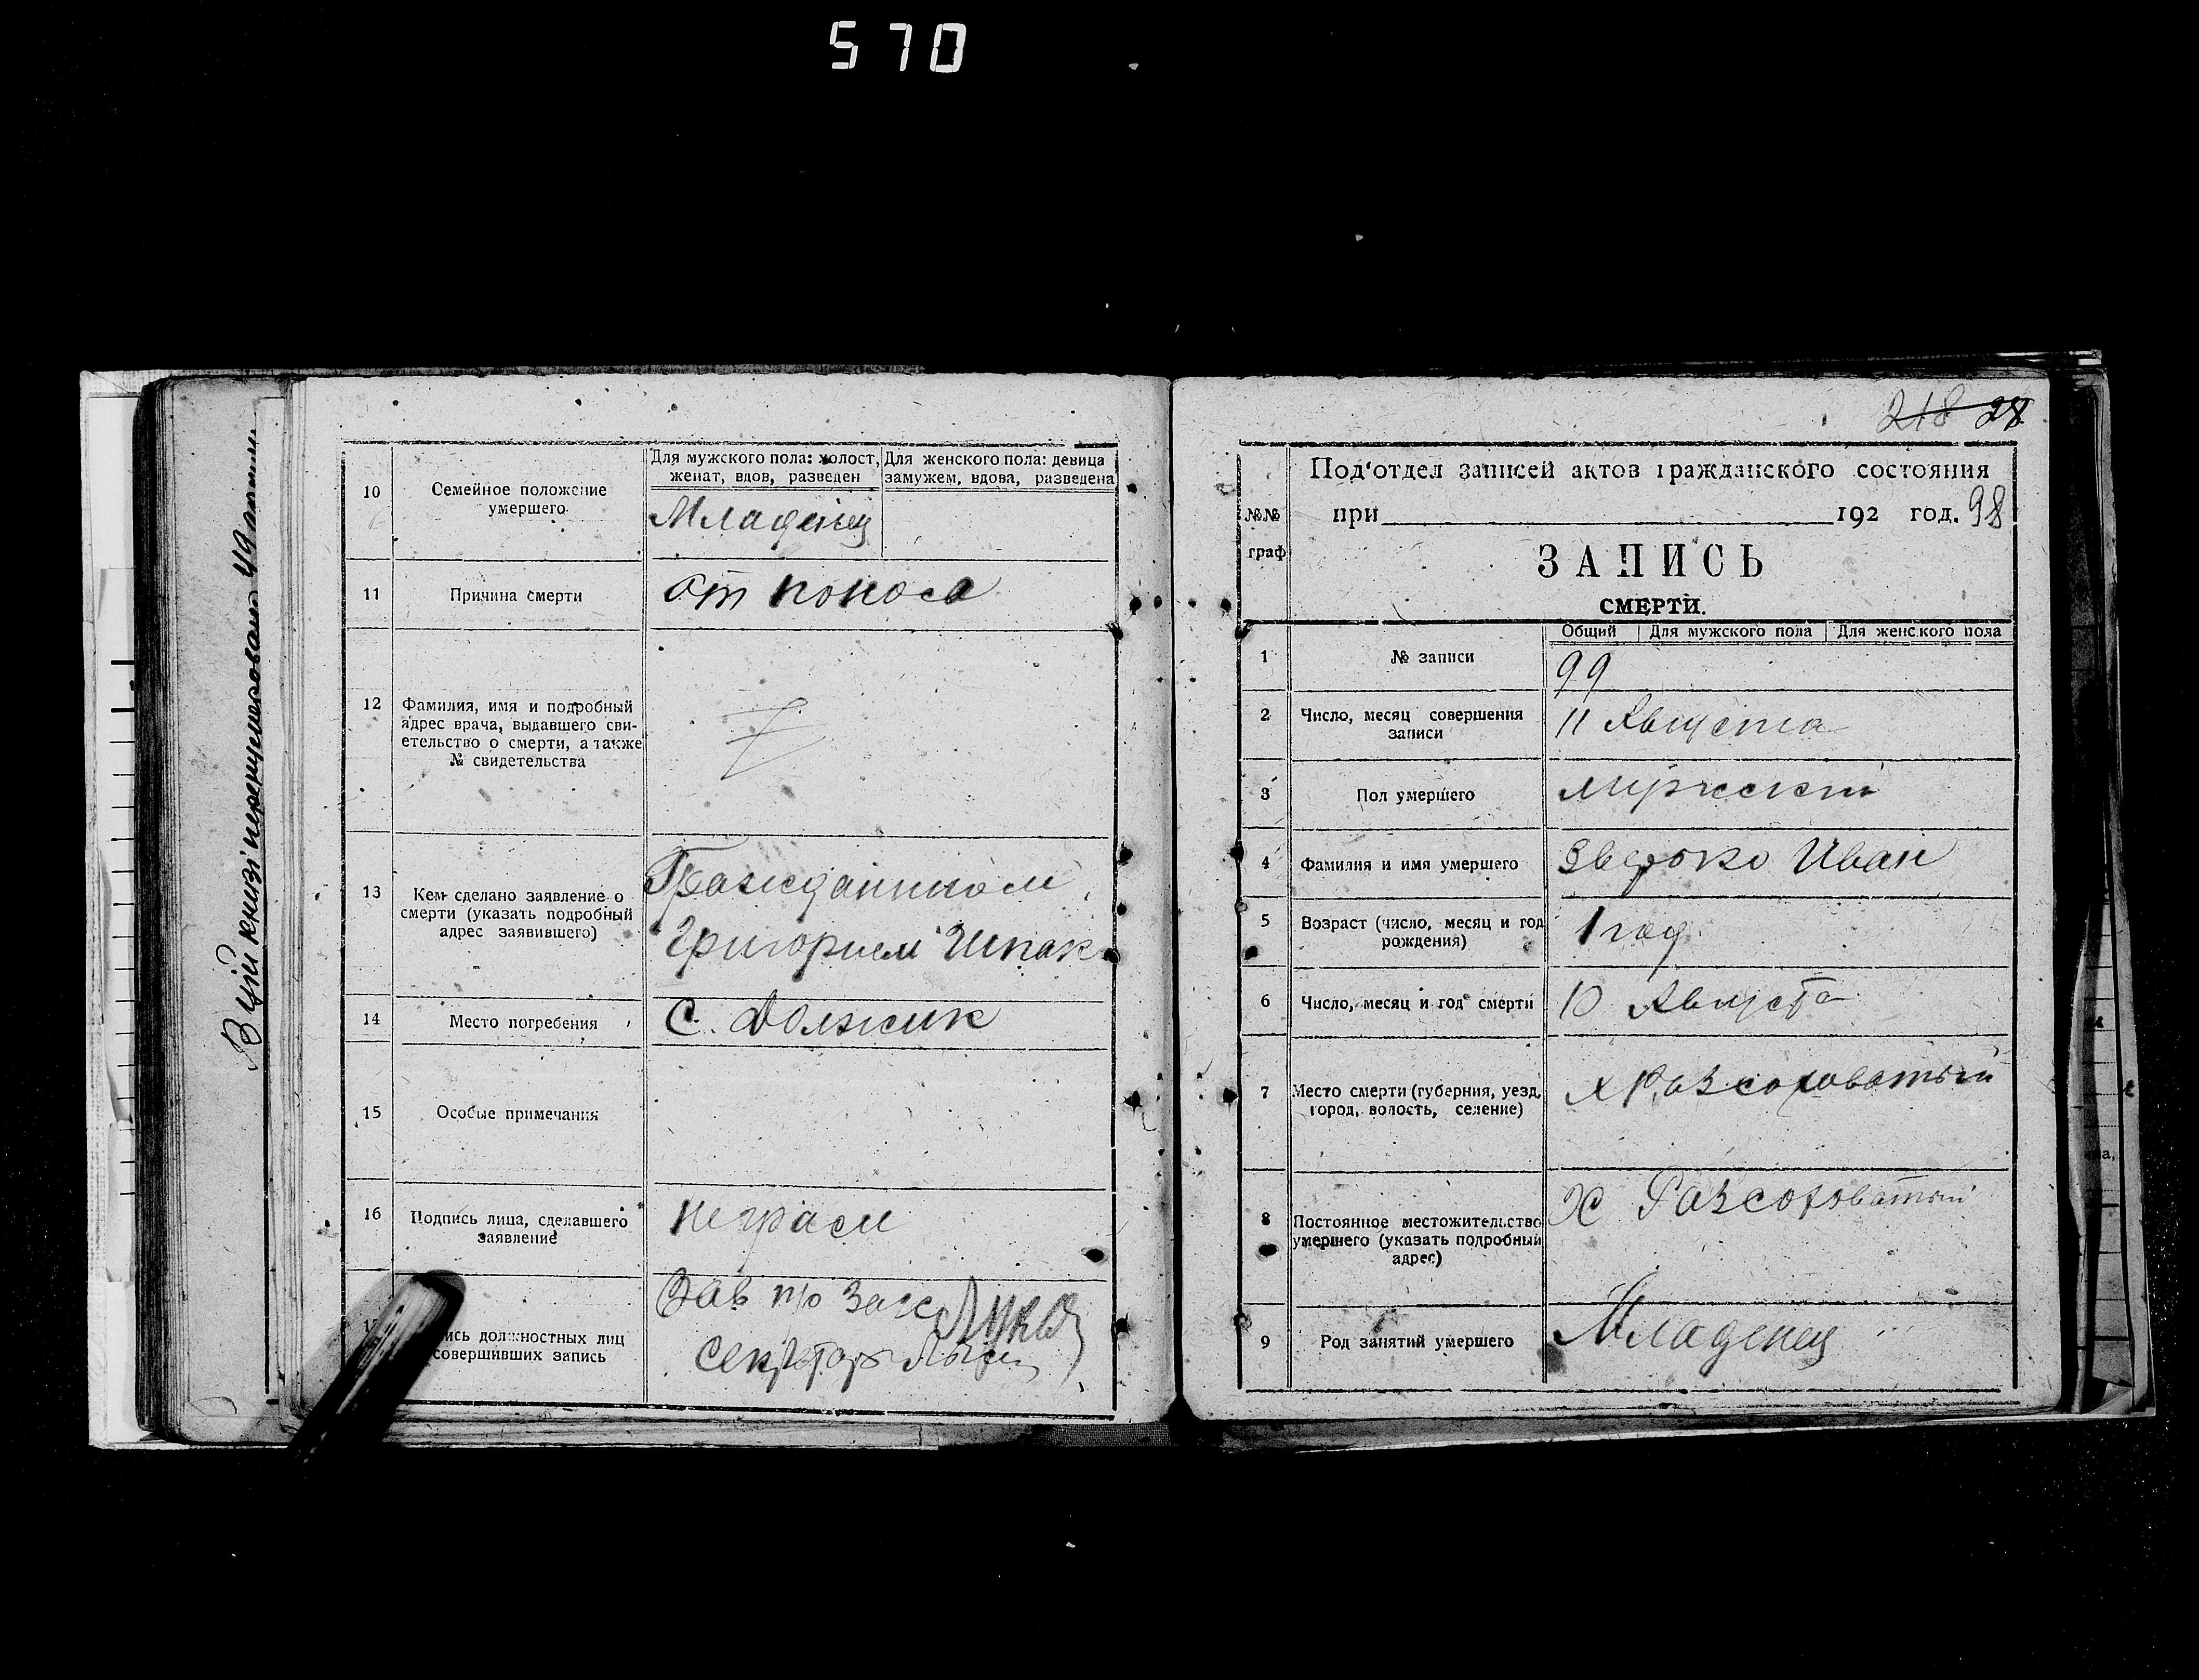 570
В цій книзі пронумеровано 49 аркуш
10
Семейное положение
умершего
Для мужского пола: холост,
женат, вдов, разведен
Для женского пола: девица
замужем, вдова, разведена
Младенец
11
Причина смерти
от поноса
12
Фамилия, имя и подробный
адрес врача, выдавшего сви-
етельство о смерти, а также
№ свидетельства
13
Кем сделано заявление о
смерти (указать подробный
адрес заявившего)
Гражданином
Григорием Шпак
14
Место погребения
С. Должик
15
Особые примечания
16
Подпись лица, сделавшего
заявление
неграм
ись должностных лиц
совершивших запись
Зав п/о Загс
Секретарь
218 28
№№
граф
Под'отдел записей актов гражданского состояния
при 192 год. 98
ЗАПИСЬ
СМЕРТИ.
Общий Для мужского пола Для женского пола
1
№ записи
99
2
Число, месяц совершения
записи
11 Августа
3
Пол умершего
мужской
4
Фамилия и имя умершего
Иван
5
Возраст (число, месяц и год
рождения)
1 год
6
Число, месяц и год смерти
10 Августа
7
Место смерти (губерния, уезд,
город, волость, селение)
х Разсоховатый
8
Постоянное местожительство
умершего (указать подробный
адрес)
Х Разсоховатый
9
Род занятий умершего
Младенец